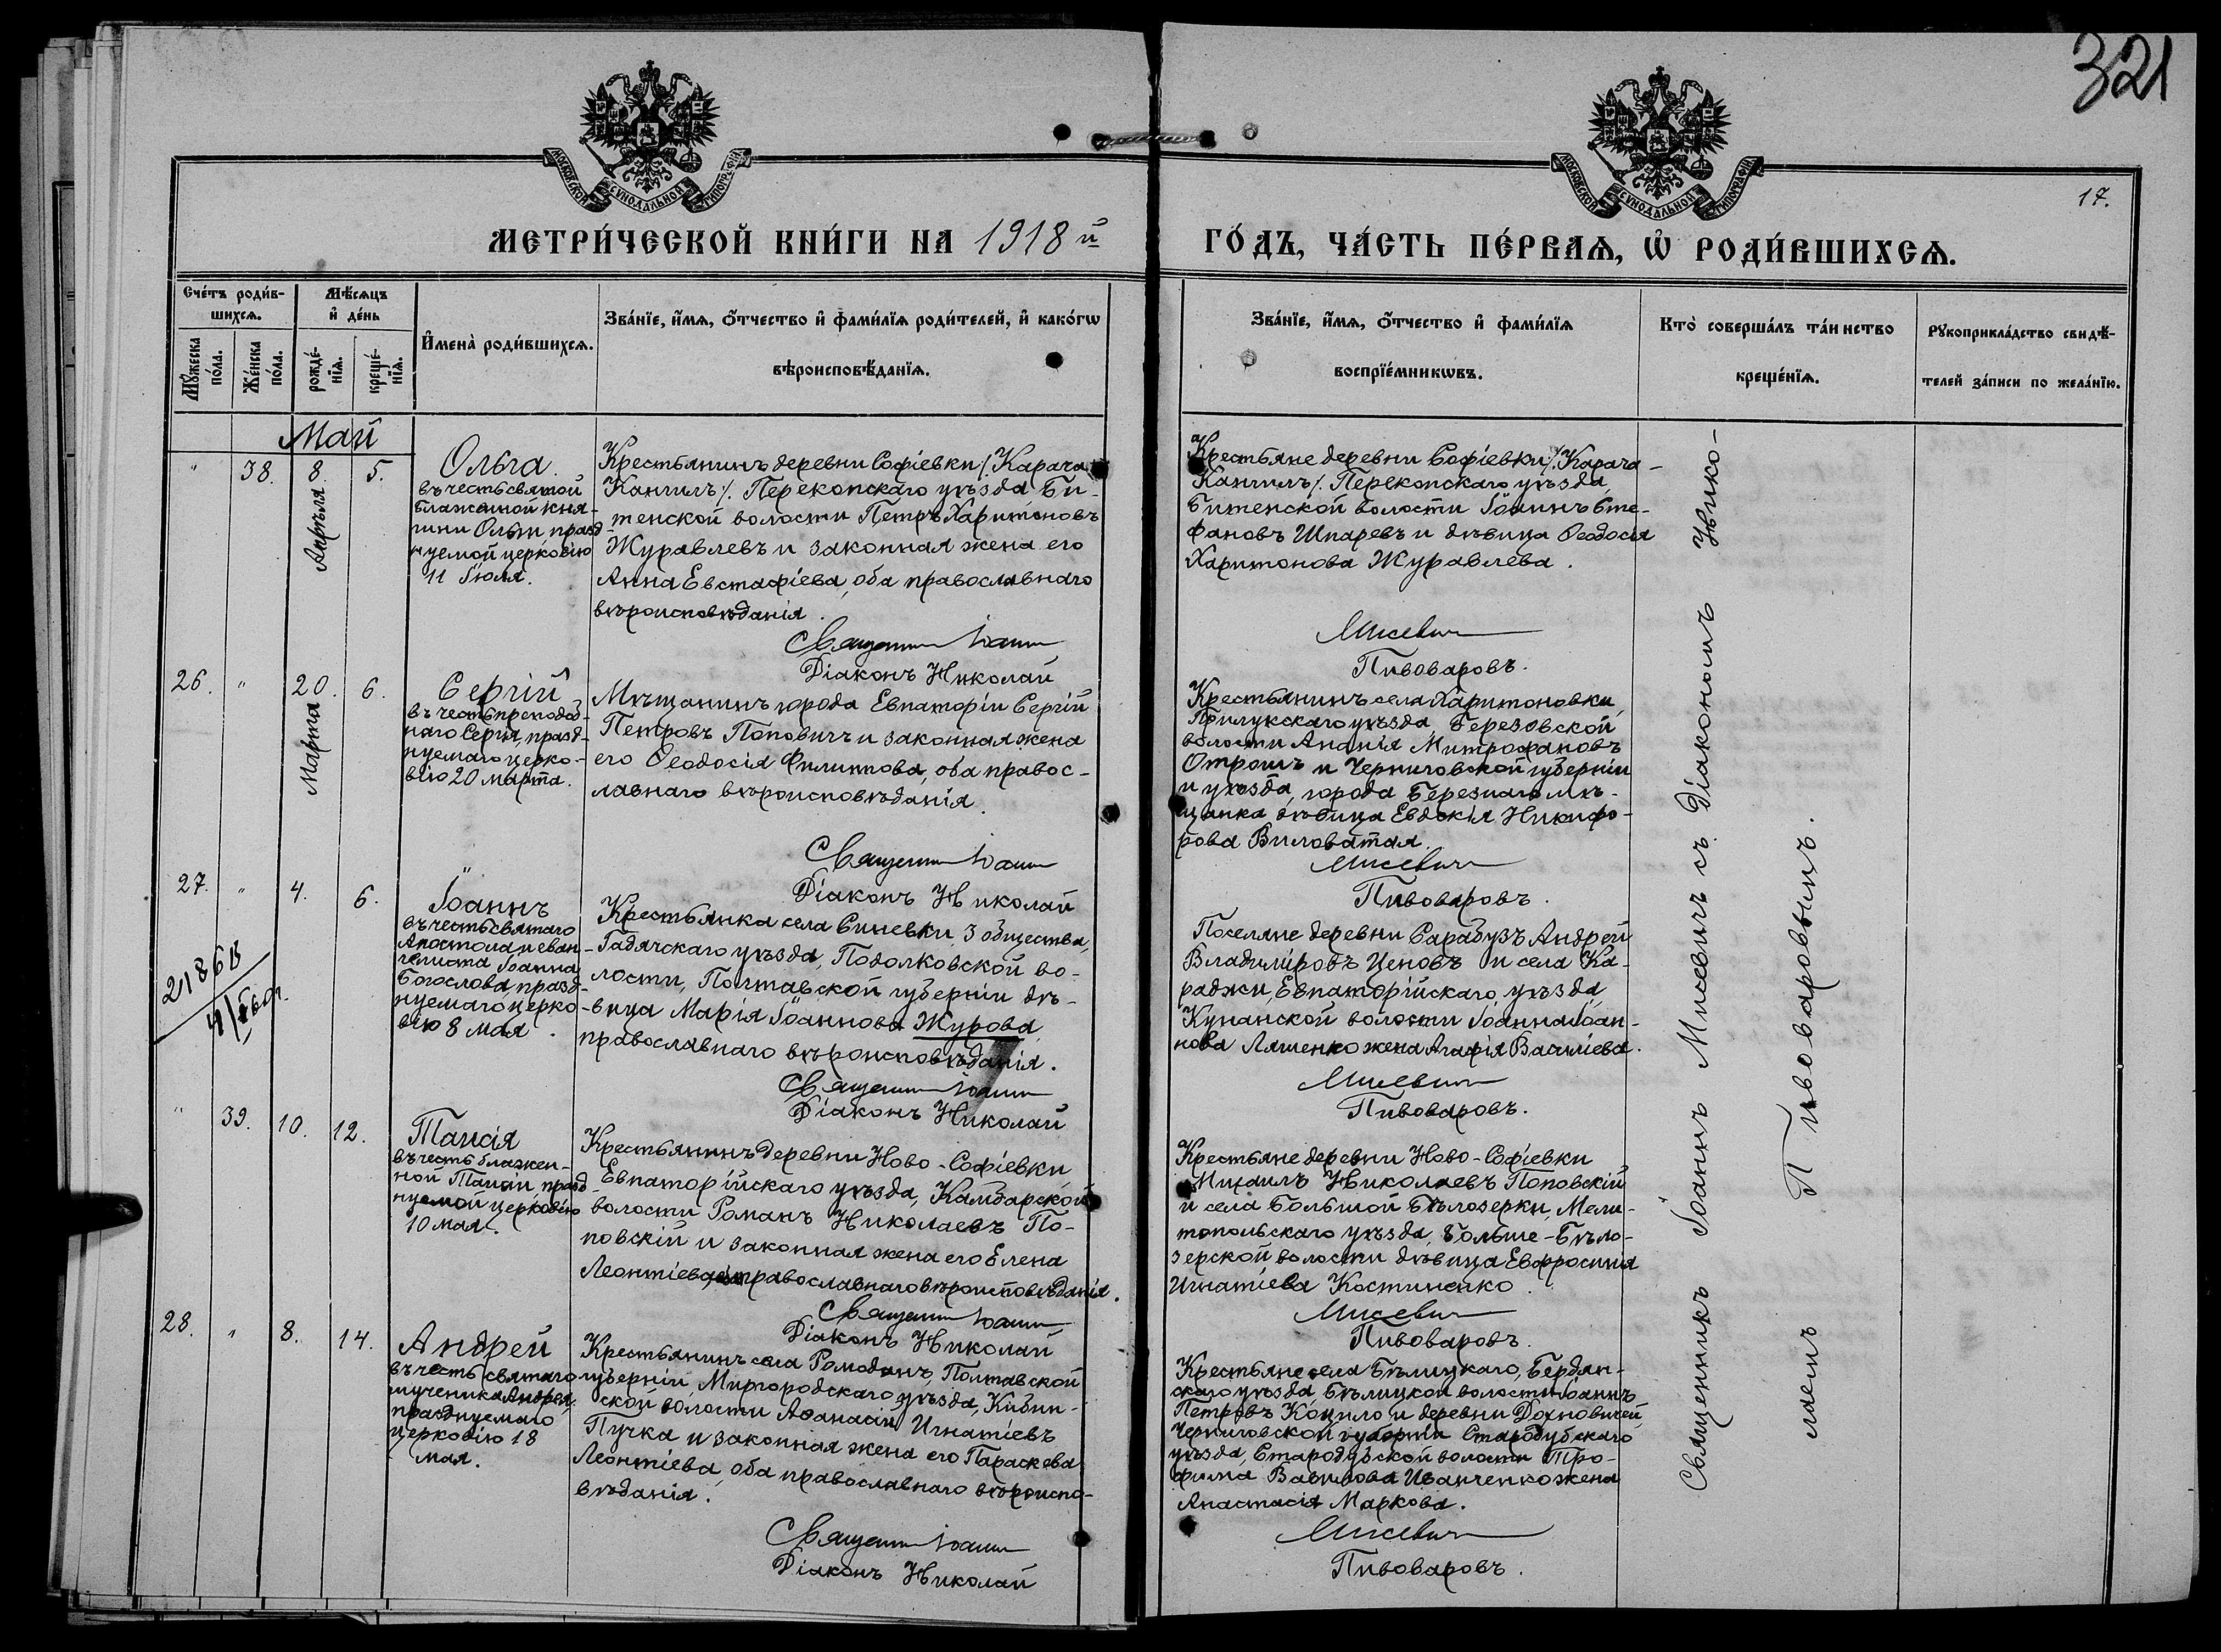 321
17.
МОСКОВСКОЙ СѴНОДАЛЬНОЙ ТИПОГРАФІИ
МОСКОВСКОЙ СѴНОДАЛЬНОЙ ТИПОГРАФІИ
МЕТРИ́ЧЕСКОЙ КНИ́ГИ НА 1918 й
ГО́ДЪ, ЧА́СТЬ ПЕ́РВАѦ, Ѡ҆ РОДИ́ВШИХСѦ.
Сче́тъ роди́в-
шихсѧ.
Мѣ́сѧцъ
и҆ де́нь
Мꙋ́жеска
по́ла.
Же́нска
по́ла.
рожде́-
нїѧ.
креще́-
нїѧ.
И҆мена̀ роди́вшихсѧ.
Зва́нїе, и҆́мѧ, ѻ҆́тчество и҆ фами́лїѧ роди́телей, и҆ како́гѡ
вѣроисповѣ́данїѧ.
Зва́нїе, и҆́мѧ, ѻ҆́тчество и҆ фами́лїѧ
воспрїе́мникѡвъ.
Кто̀ соверша́лъ та́инство
креще́нїѧ.
Рꙋкоприкла́дство свидѣ́-
телей за́писи по жела́нїю.
Май
" 38. 8. 5.
Апрѣля
Ольга
въ честь святой
блаженной кня-
гини Ольги, празд
нуемой церковію
11 Іюля.
Крестьянинъ деревни Софіевки /. Карача
Кангилъ /. Перекопскаго уѣзда, Би-
тенской волости Петръ Харитоновъ
Журавлевъ и законная жена его
Анна Евстафіева, оба православнаго
вѣроисповѣданія.
Священникъ Іоаннъ
Діаконъ Николай
Крестьяне деревни Софіевки /. Карача-
Кангилъ /. Перекопскаго уѣзда,
Битенской волости Іоаннъ Сте-
фановъ Шпаревъ и дѣвица Ѳеодосія
Харитонова Журавлева.
Мисевич
Пивоваровъ.
26. " 20. 6.
Марта
Сергій
въ честь преподоб-
наго Сергія, празд-
нуемаго церко-
вію 20 марта.
Мѣщанинъ города Евпаторіи Сергій
Петровъ Поповичъ и законная жена
его Ѳеодосія Филиппова, оба правос-
лавнаго вѣроисповѣданія.
Священникъ Іоаннъ
Діаконъ Николай
Крестьянинъ села Харитоновки,
Прилукскаго уѣзда Березовской
волости Ананія Митрофановъ
Отрошъ и Черниговской губерніи
и уѣзда, города Березнаго мѣ-
щанка дѣвица Евдокія Никифо-
рова Виловатая.
Мисевич
Пивоваровъ.
27. " 4. 6.
21868
Іоаннъ
въ честь святаго
Апостола и еван-
гелиста Іоанна
Богослова празд-
нуемаго церко-
вію 8 мая.
Крестьянка села Синевки, 3 общества,
Гадячскаго уѣзда, Подолковской во-
лости, Полтавской губерніи дѣ-
вица Марія Іоаннова Журова,
православнаго вѣроисповѣданія.
Священникъ Іоаннъ
Діаконъ Николай
Поселяне деревни Сарабузъ Андрей
Владиміровъ Ценовъ и села Ка-
раджи, Евпаторійскаго уѣзда,
Кунанской волости Іоанна Іоан-
нова Ляшенко жена Агафія Васильева.
Мисевич
Пивоваровъ.
" 39. 10. 12.
Таисія
въ честь блажен-
ной Таисіи празд
нуемой церковію
10 мая.
Крестьянинъ деревни Ново-Софіевки
Евпаторійскаго уѣзда, Камбарской
волости Романъ Николаевъ По-
повскій и законная жена его Елена
Леонтіева, православнаго вѣроисповѣданія.
Священникъ Іоаннъ
Діаконъ Николай
Крестьяне деревни Ново-Софіевки
Михаилъ Николаевъ Поповскій
и села Большой Бѣлозерки, Мели-
топольскаго уѣзда, Больше-Бѣло-
зерской волости дѣвица Евфросинія
Игнатіева Костиненко.
Мисевич
Пивоваровъ.
28. " 8. 14.
Андрей
въ честь святаго
мученика Андрея,
празднуемаго
церковію 18
мая.
Крестьянинъ села Ромоданъ, Полтавской
губерніи, Миргородскаго уѣзда, Кибин-
ской волости Аѳанасій Игнатіевъ
Пучка и законная жена его Параскева
Леонтіева, оба православнаго вѣроиспо-
вѣданія.
Священникъ Іоаннъ
Діаконъ Николай
Крестьяне села Бѣлицкаго, Бердян-
скаго уѣзда, Бѣлицкой волости Іоаннъ
Петровъ Коцило и деревни Дохновичей,
Черниговской губерніи Стародубскаго
уѣзда, Стародубской волости Тро-
фима Вавилова Иванченко жена
Анастасія Маркова.
Мисевич
Пивоваровъ.
Священникъ Іоаннъ Мисевичъ съ Діакономъ Нико-
лаемъ Пивоваровымъ.